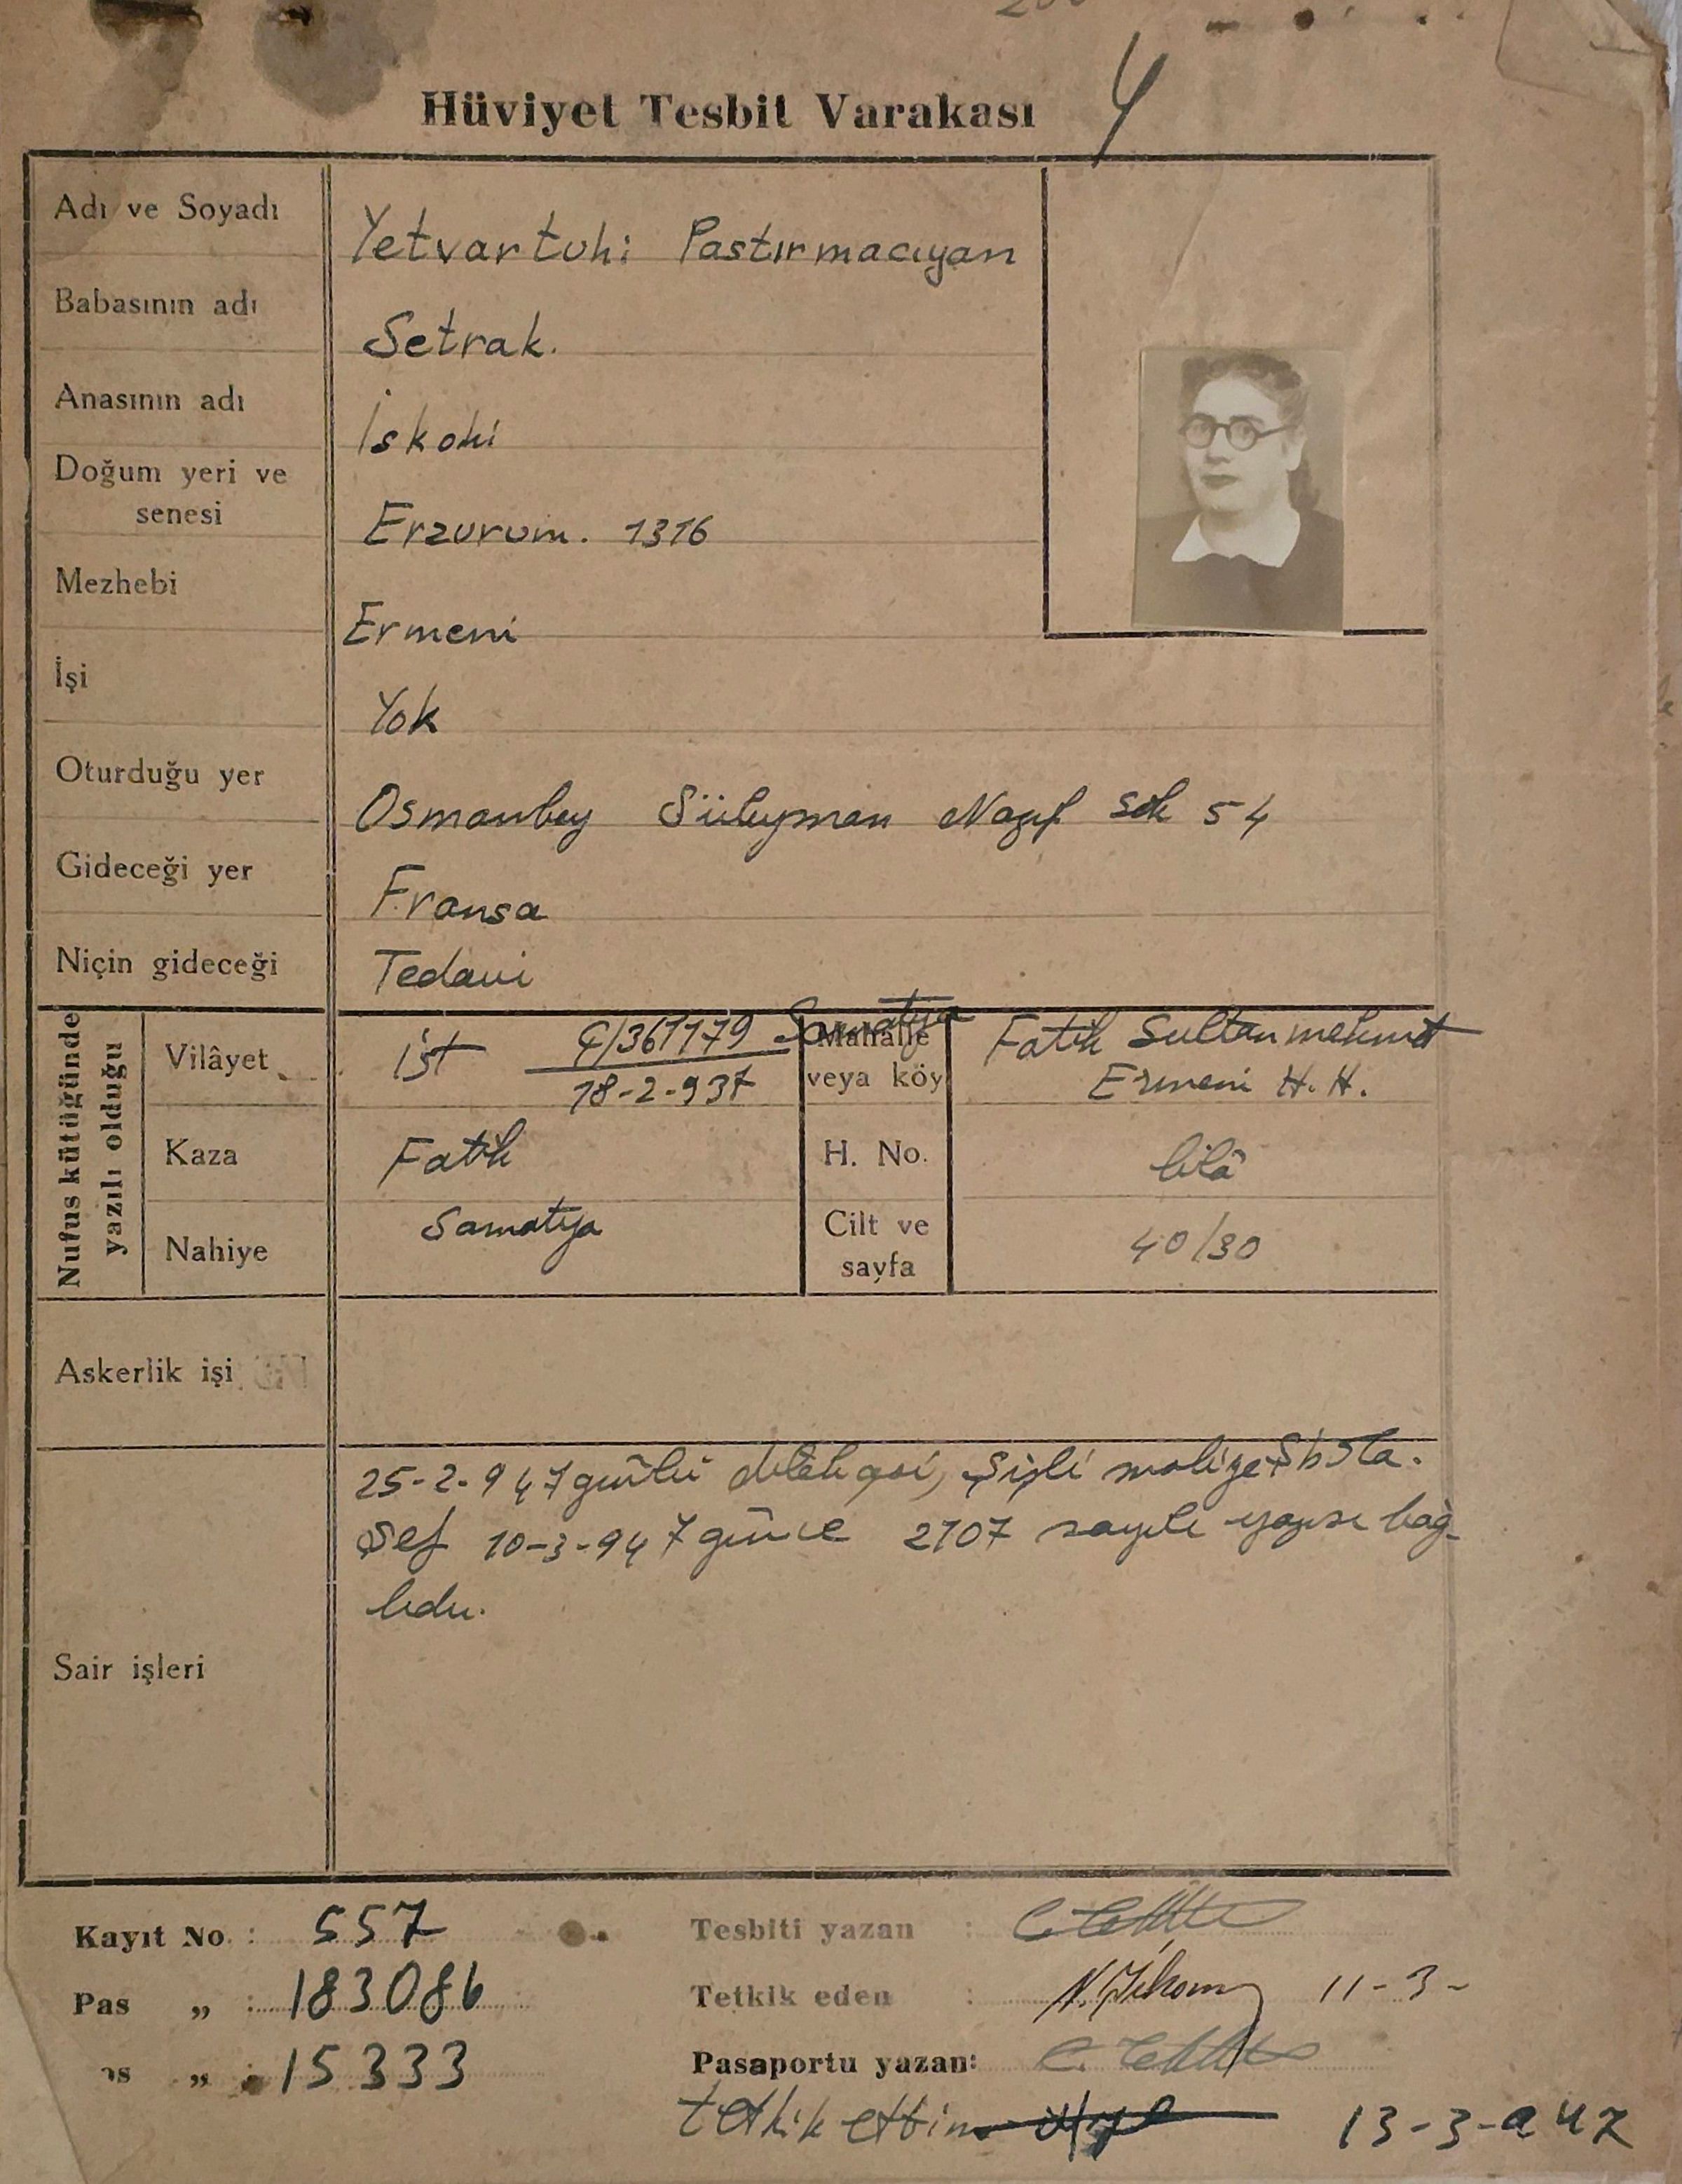 Hüviyet Tesbit Varakası
Adı ve Soyadı Yetvartuhi Pastırmacıyan
Babasının adı Setrak.
Anasının adı İskohi
Doğum yeri ve senesi Erzurum. 1316
Mezhebi Ermeni
İşi Yok
Oturduğu yer Osmanbey Süleyman Nazif sok 54
Gideceği yer Fransa
Niçin gideceği Tedavi
Nufus kütüğünde yazılı olduğu
Vilâyet ist 361179 Samatya
18-2-937
Mahalle veya köy Fatih Sultanmehmet
Ermeni H. H.
Kaza Fatih
H. No. bilâ
Nahiye Samatya
Cilt ve sayfa 40/30
Askerlik işi
Sair işleri
25-2-947 günlü Şişli maliye
Şef 10-3-947 gün ve 2107 sayılı yazısı bağ-
lıdır.
Kayıt No : 557
Tesbiti yazan :
Pas „ : 183086
Tetkik eden : 11-3-
„ : 15333
Pasaportu yazan:
tetkik ettim 13-3-947